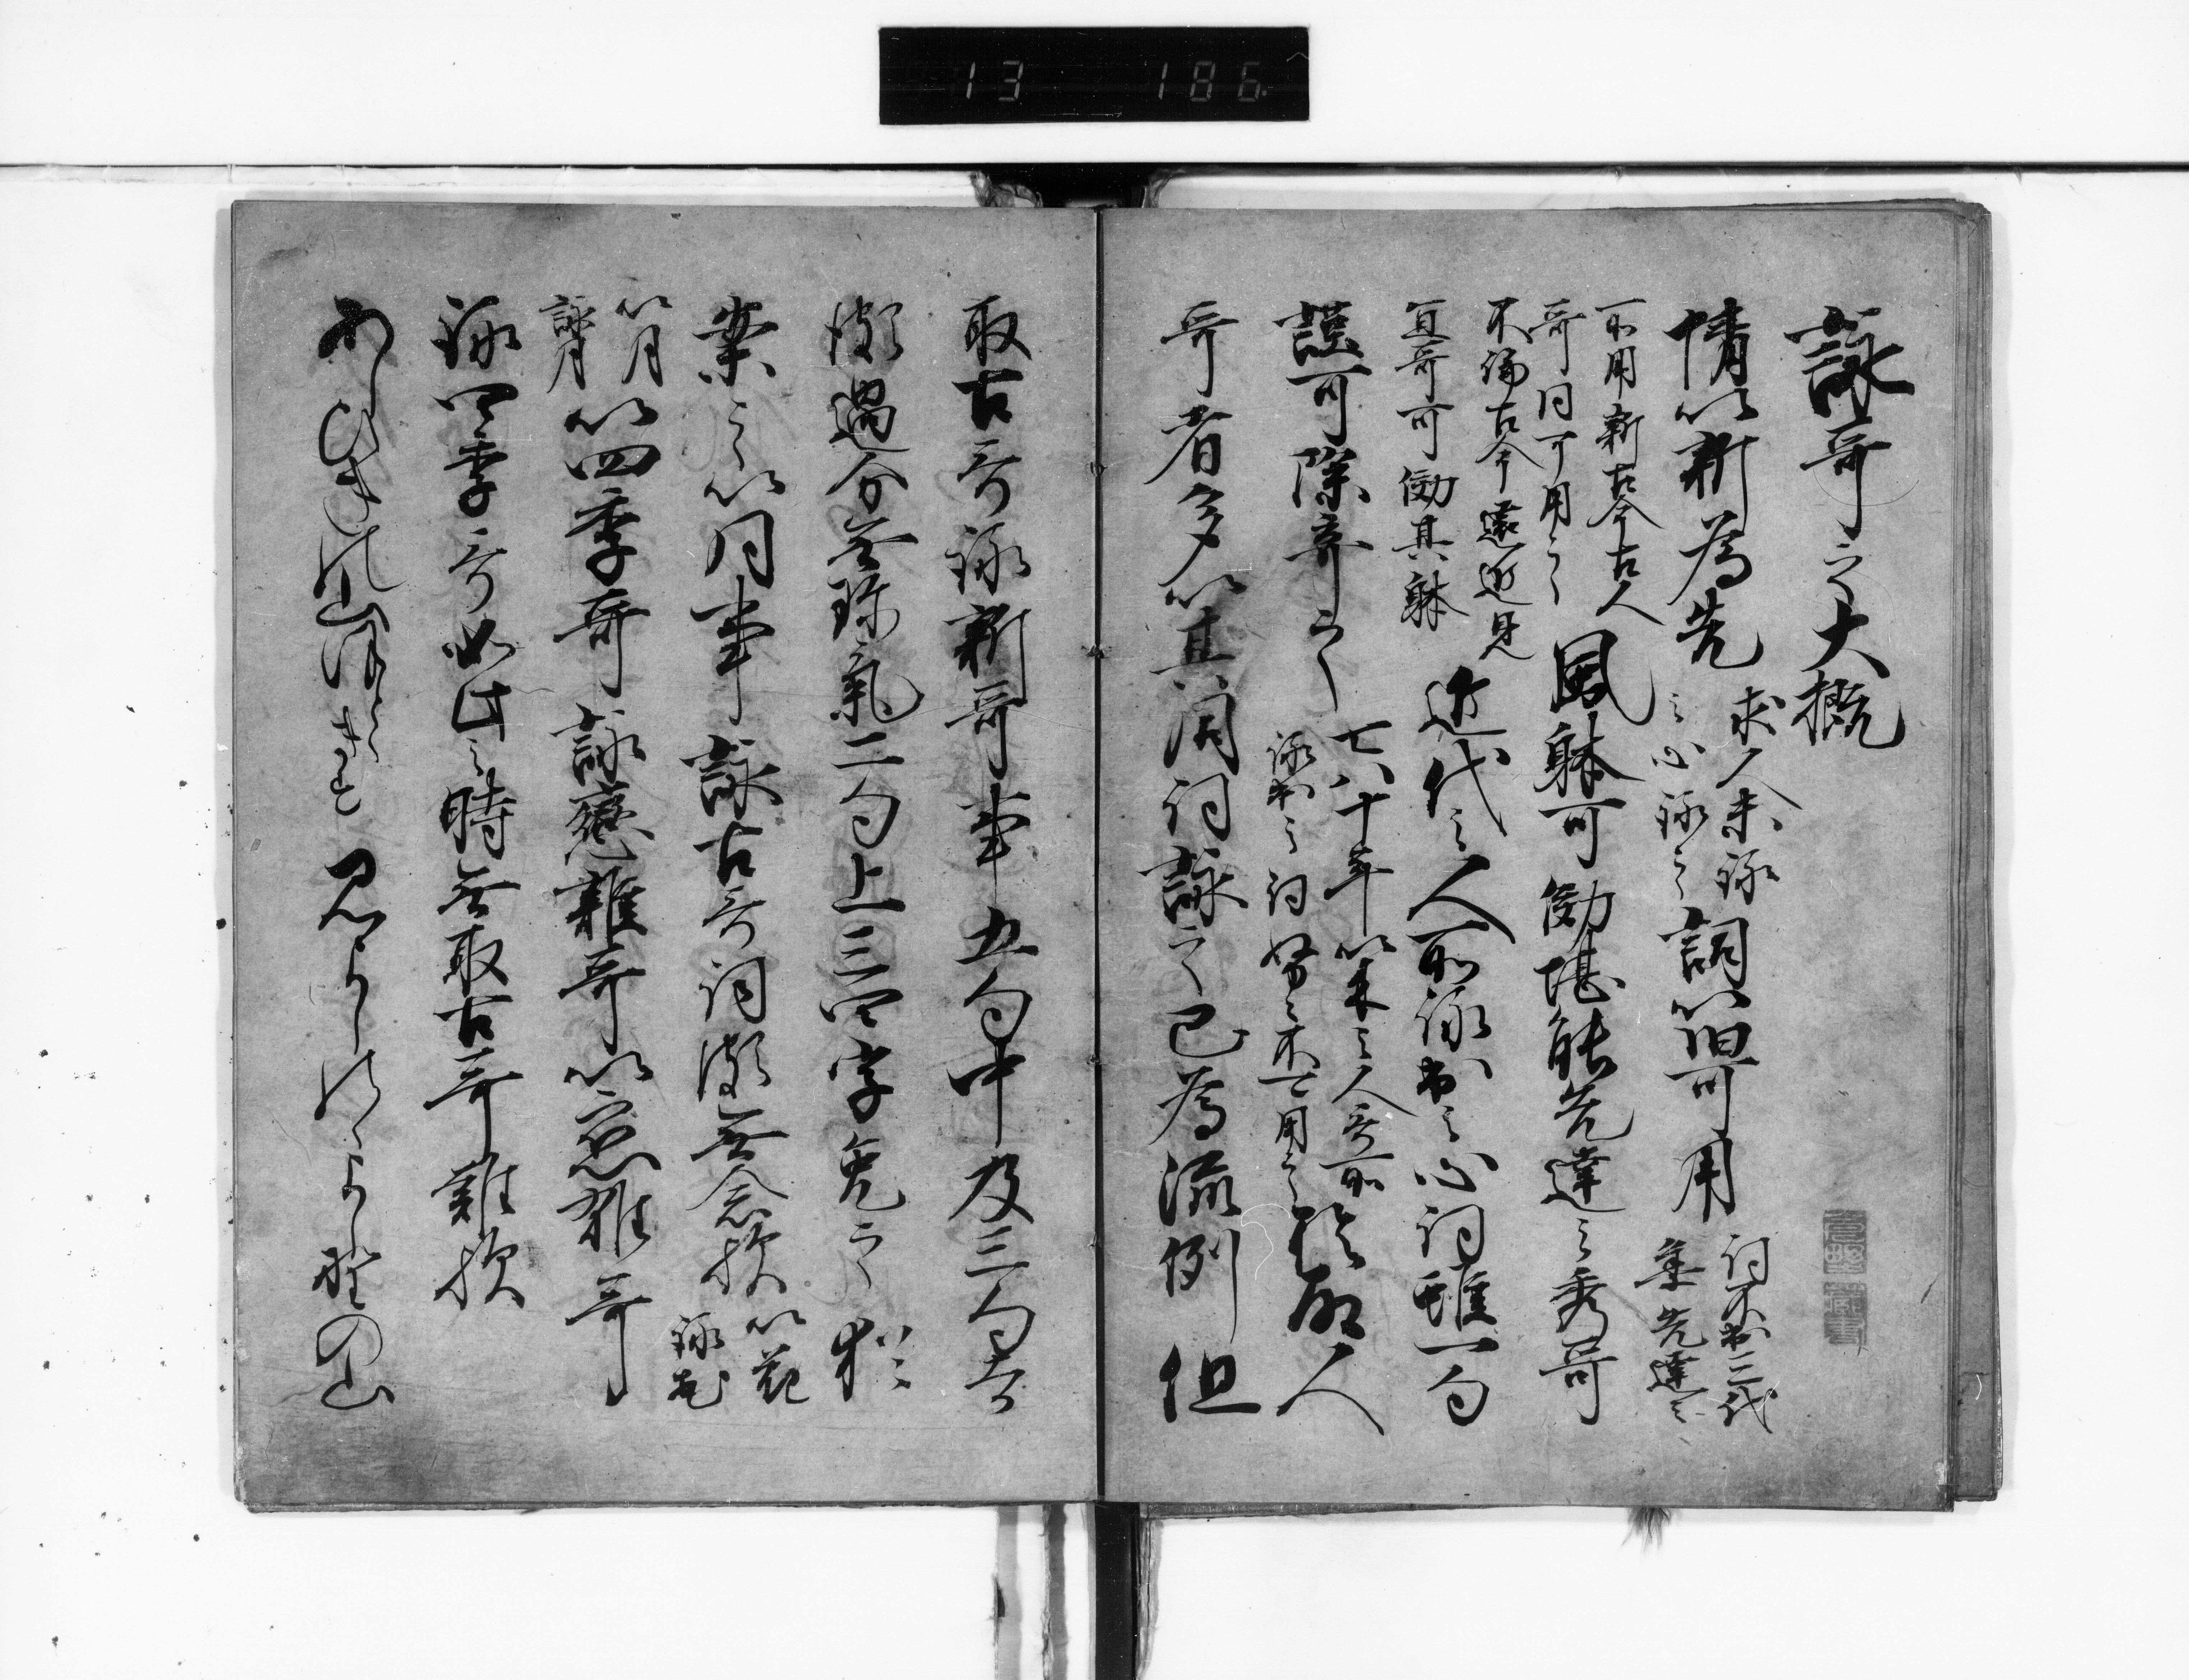 13 186
詠哥之大概
情以新為先 求人未詠
之心詠之 詞以旧可用 詞不出三代
集先達之
所用新古今古人
哥同可用之 風躰可効堪能先達之秀哥
不論古今遠近見
宜哥可効其躰 近代之人所詠出之心詞雖一句
謹可除弃之 七八十年以来之人哥所
詠出之詞努々不可用之 於古人
哥者多以其同詞詠之已為流例但
取古哥詠新哥事五句中及三句者
頗過分無珍氣二句上三四字免之猶
案之以同事詠古哥詞頗無念歟 以花
詠花
以月
詠月 以四季哥詠戀雑哥以恋雑哥
詠四季哥如此之時無取古哥難歟
あしひきの山ほとゝきす みよしのゝよしのゝ山